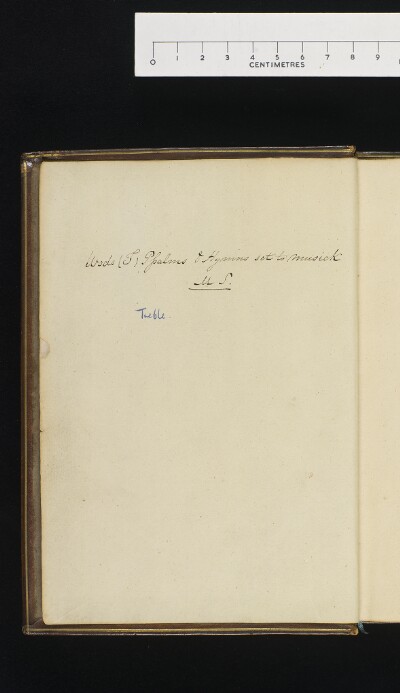 0 1 2 3 4 5 6 7 8 9
CENTIMETRES
(T) Psalms & Hymns set to Musick
M S.
Treble.